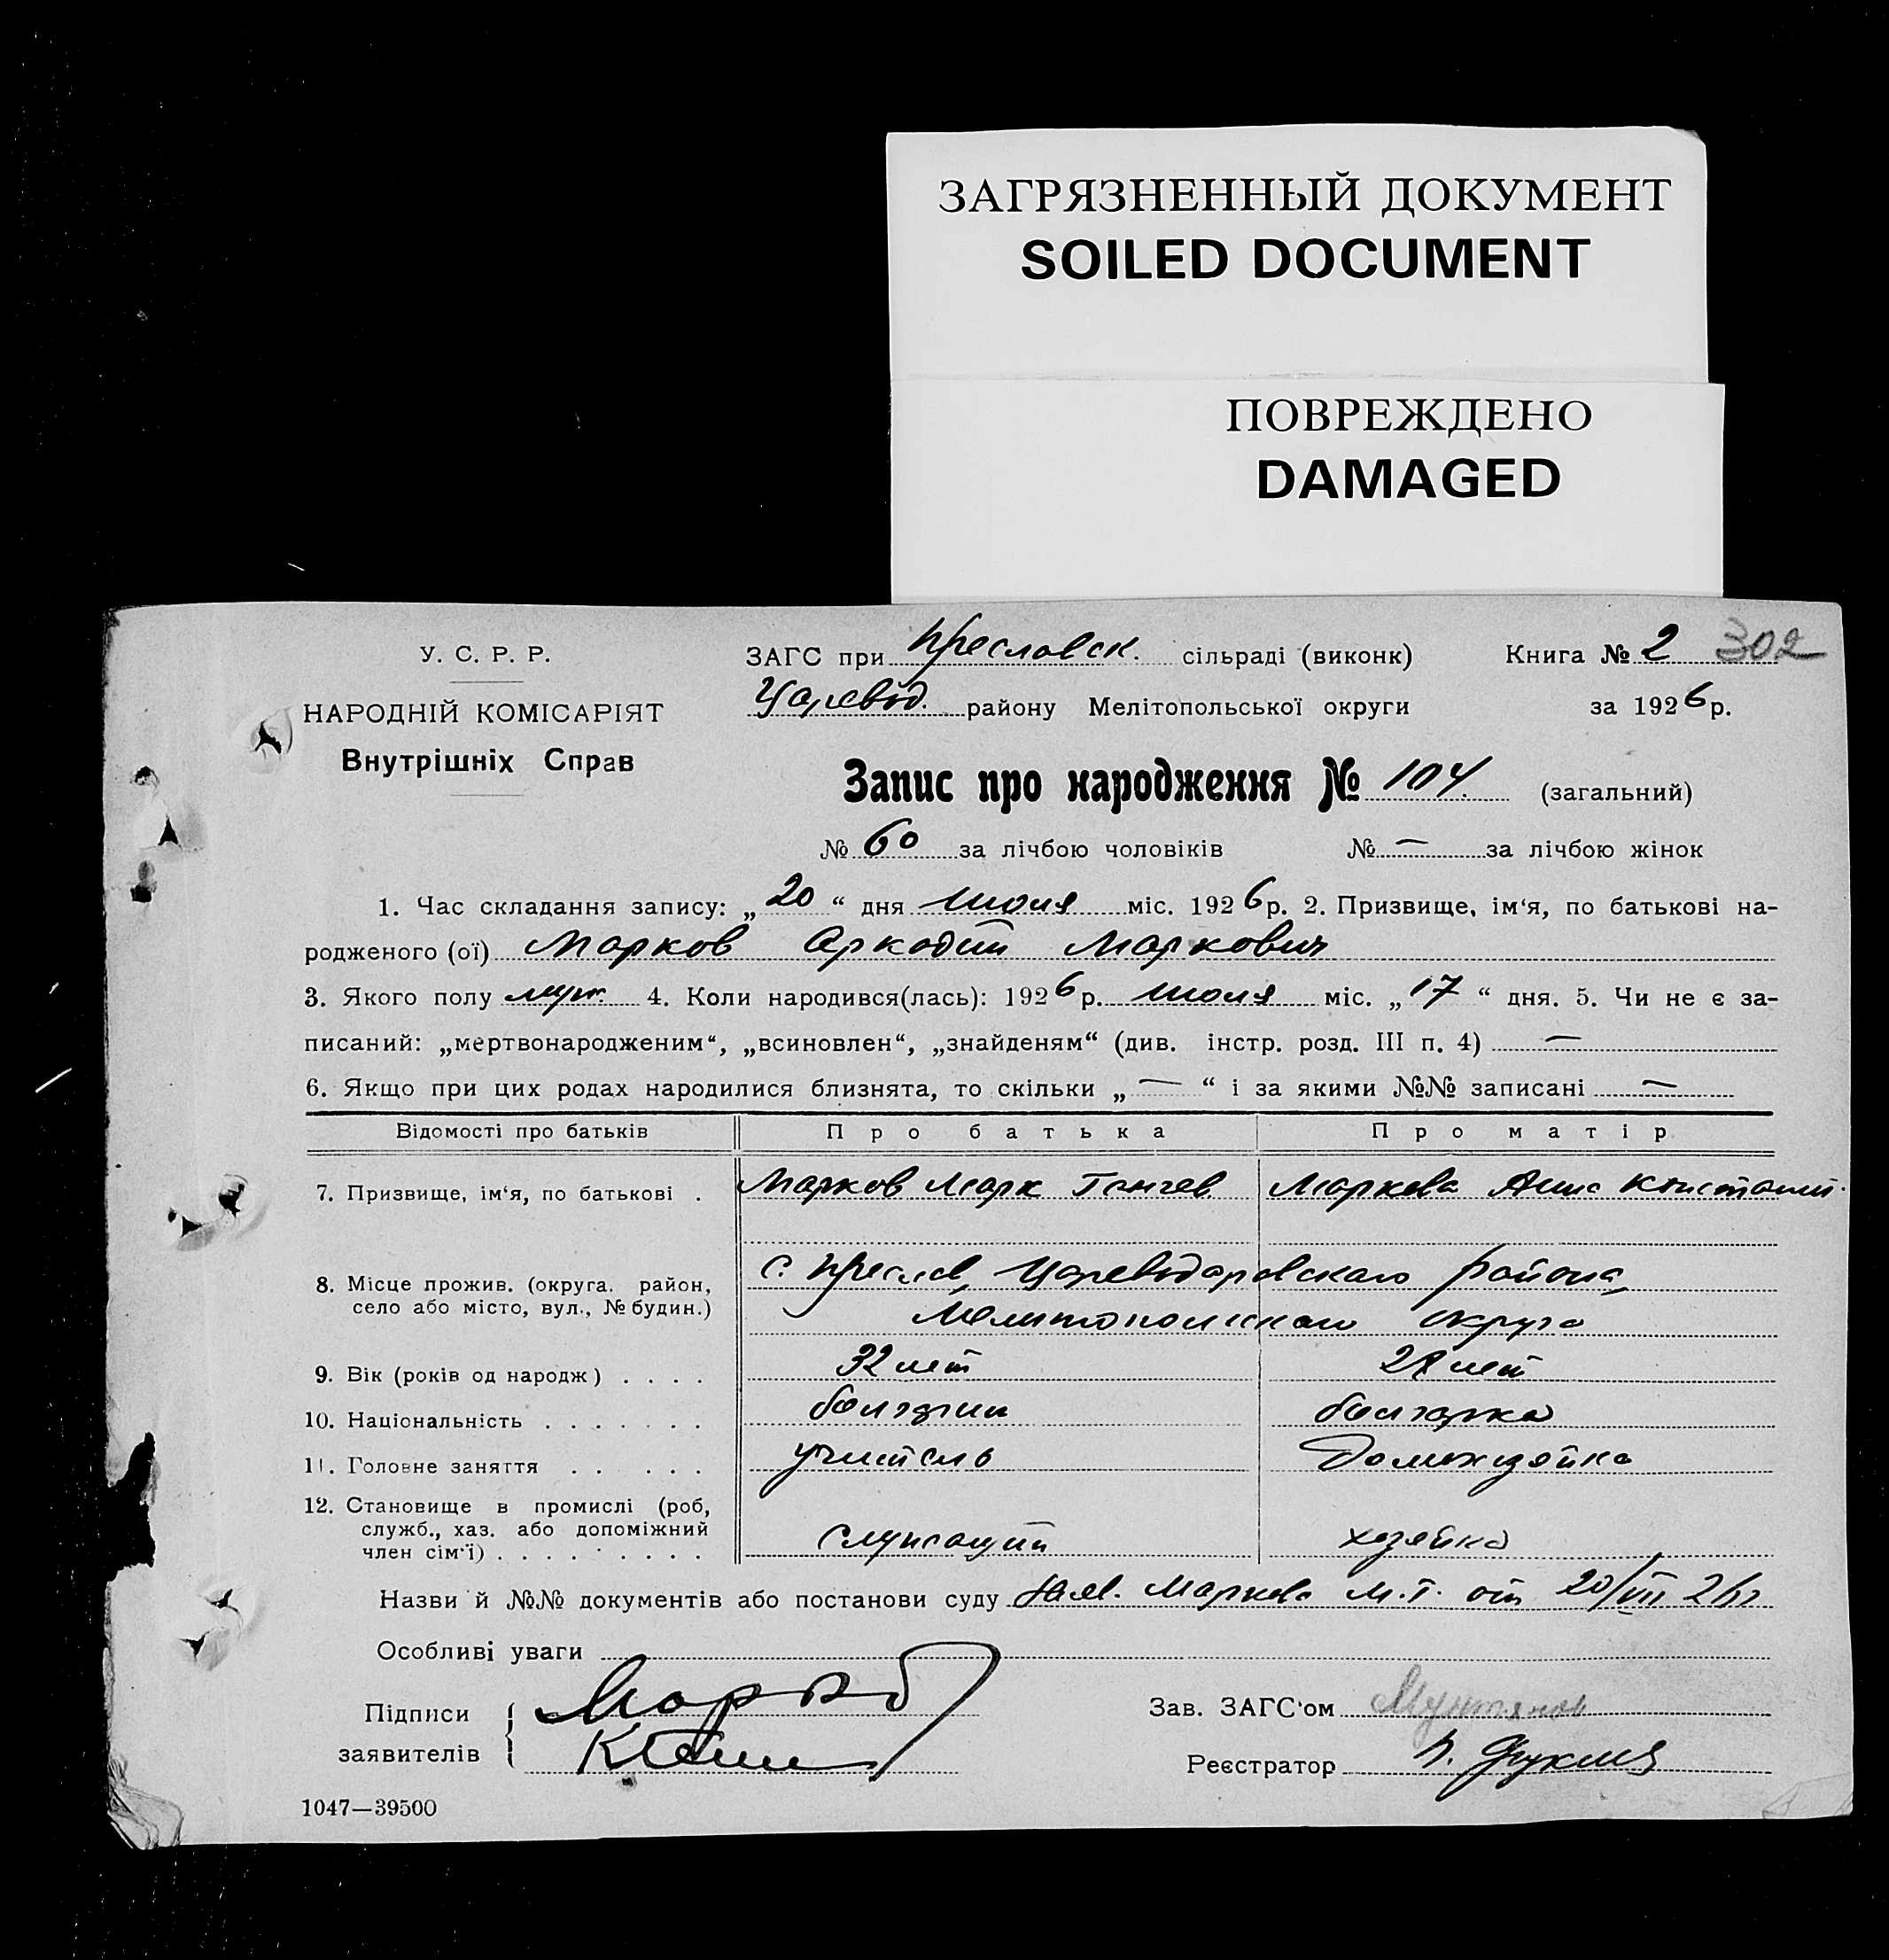 ЗАГРЯЗНЕННЫЙ ДОКУМЕНТ
SOILED DOCUMENT
ПОВРЕЖДЕНО
DAMAGED
У. С. Р. Р.
НАРОДНІЙ КОМІСАРІЯТ
Внутрішніх Справ
ЗАГС при Преславск. сільраді (виконк) Книга № 2 302
Царевод. району Мелітопольської округи за 1926 р.
Запис про народження № 104. (загальний)
№ 60 за лічбою чоловіків № — за лічбою жінок
1. Час складання запису: „20“ дня июля міс. 1926 р. 2. Призвище, ім‘я, по батькові на-
родженого (ої) Марков Аркадий Маркович
3. Якого полу муж. 4. Коли народився(лась): 1926 р. июля міс. „17“ дня. 5. Чи не є за-
писаний: „мертвонародженим“, „всиновлен“, „знайденям“ (див. інстр. розд. III п. 4) —
6. Якщо при цих родах народилися близнята, то скільки „—“ і за якими №№ записані —
Відомості про батьків Про батька Про матір
7. Призвище, ім‘я, по батькові . Марков Марк Ганчев Маркова Анна Констант.
8. Місце прожив. (округа. район, с. Преслав, Цареводаровского района,
село або місто, вул., № будин.) Мелитопольского округа
9. Вік (років од народж) . . . . 32 лет 28 лет
10. Національність . . . . . . . болгарин болгарка
11. Головне заняття . . . . . учитель домохозяйка
12. Становище в промислі (роб,
служб., хаз. або допоміжний
член сім‘ї) . . . . . . . . . служащий хозяйка
Назви й №№ документів або постанови суду Заяв. Маркова М. Г. от 20/VII 26 г
Особливі уваги
Підписи Марков Зав. ЗАГС‘ом Мунтянов
заявителів Реєстратор
1047—39500